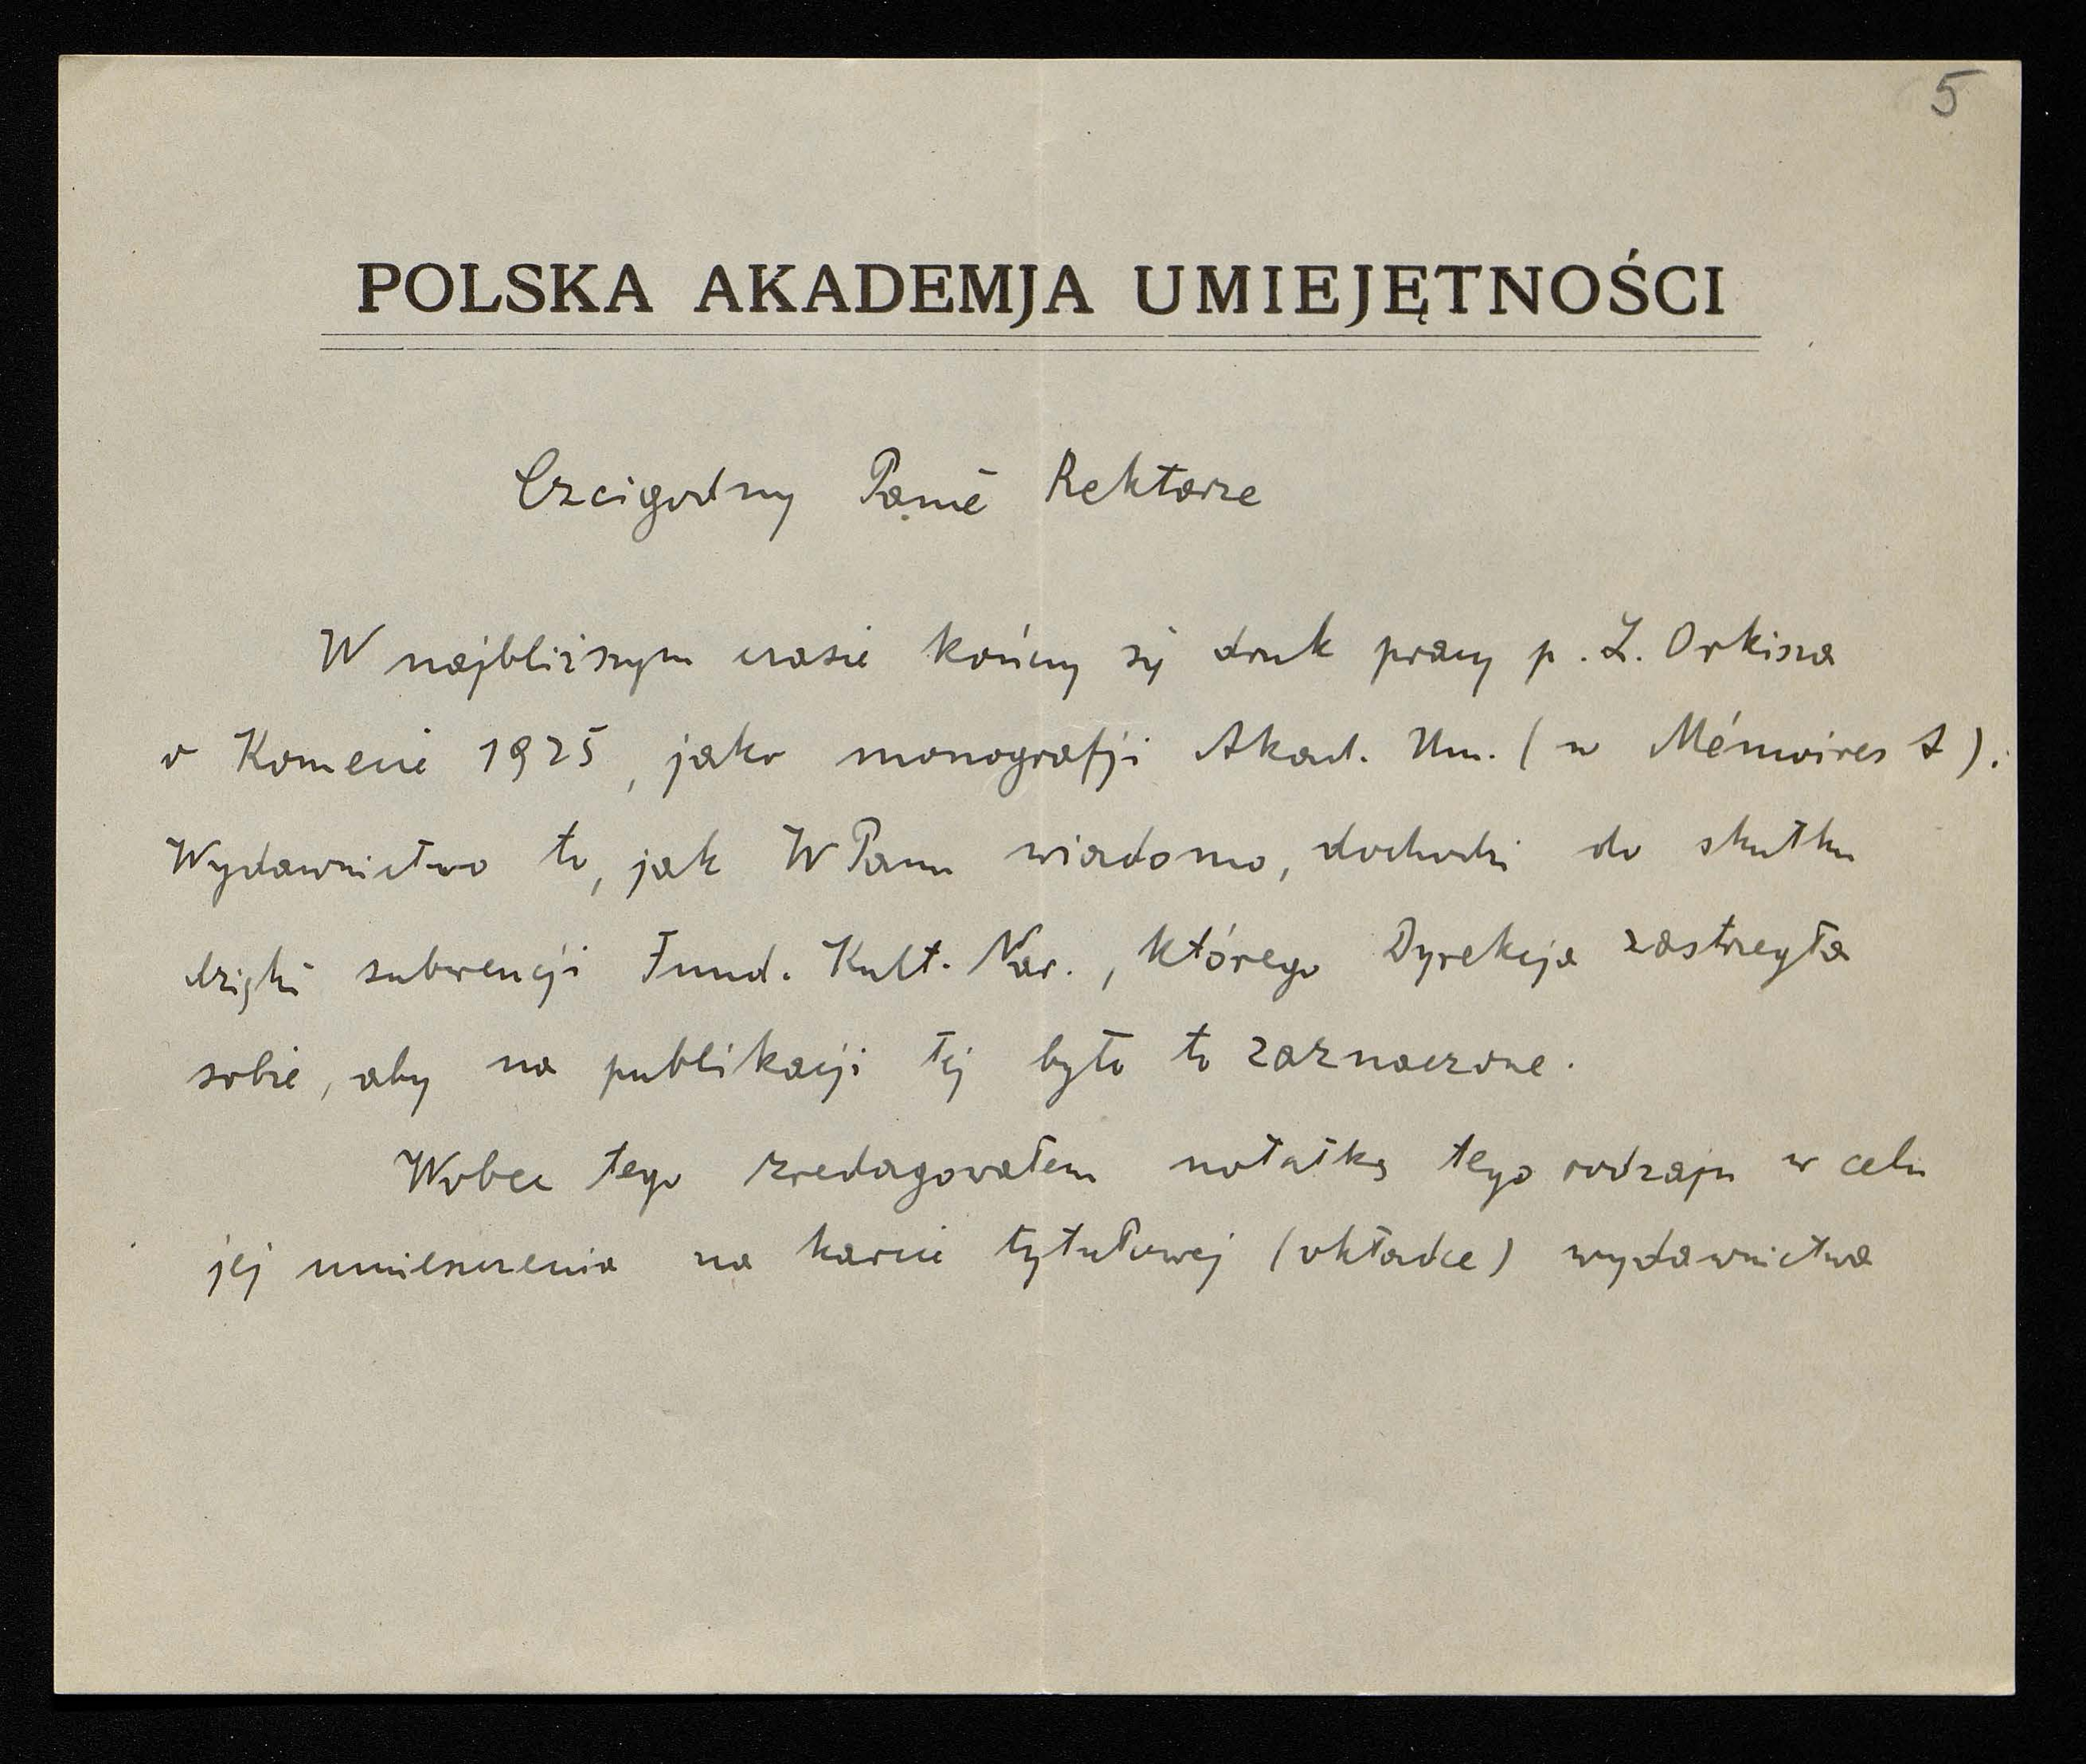 5
POLSKA AKADEMJA UMIEJĘTNOŚCI
Czcigodny Panie Rektorze
W najbliższym czasie kończy się druk pracy p. L. Orkisza
o Komecie 1925, jako monografji Akad. Um. (w Mémoires A).
Wydawnictwo to, jak WPanu wiadomo, dochodzi do skutku
dzięki subwencji Fund. Kult. Nar., którego Dyrekcja zastrzegła
sobie, aby na publikacji tej było to zaznaczone.
Wobec tego zredagowałem notatkę tego rodzaju w celu
jej umieszczenia na karcie tytułowej (okładce) wydawnictwa